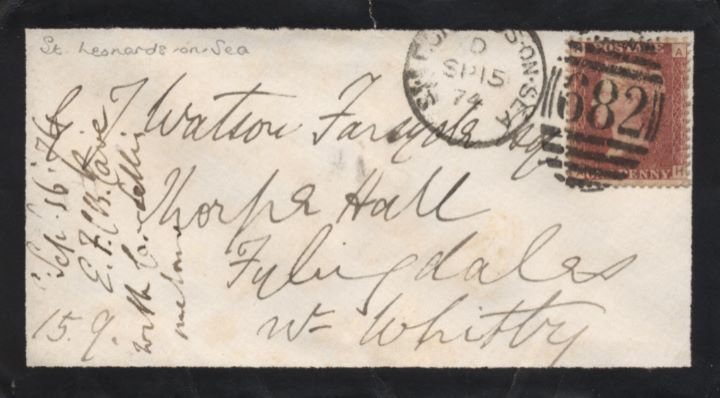 St. Leonards-on-Sea
ST LEONARDS-ON-SEA
D
SP 15
74
A
POSTAGE
682
ONE PENNY
H
G. J Watson Farsyde Esq
Thorpe Hall
Fylingdales
Nr Whitby
Sep. 16. 74
E. F. C. B. Cave
with
15. 9.